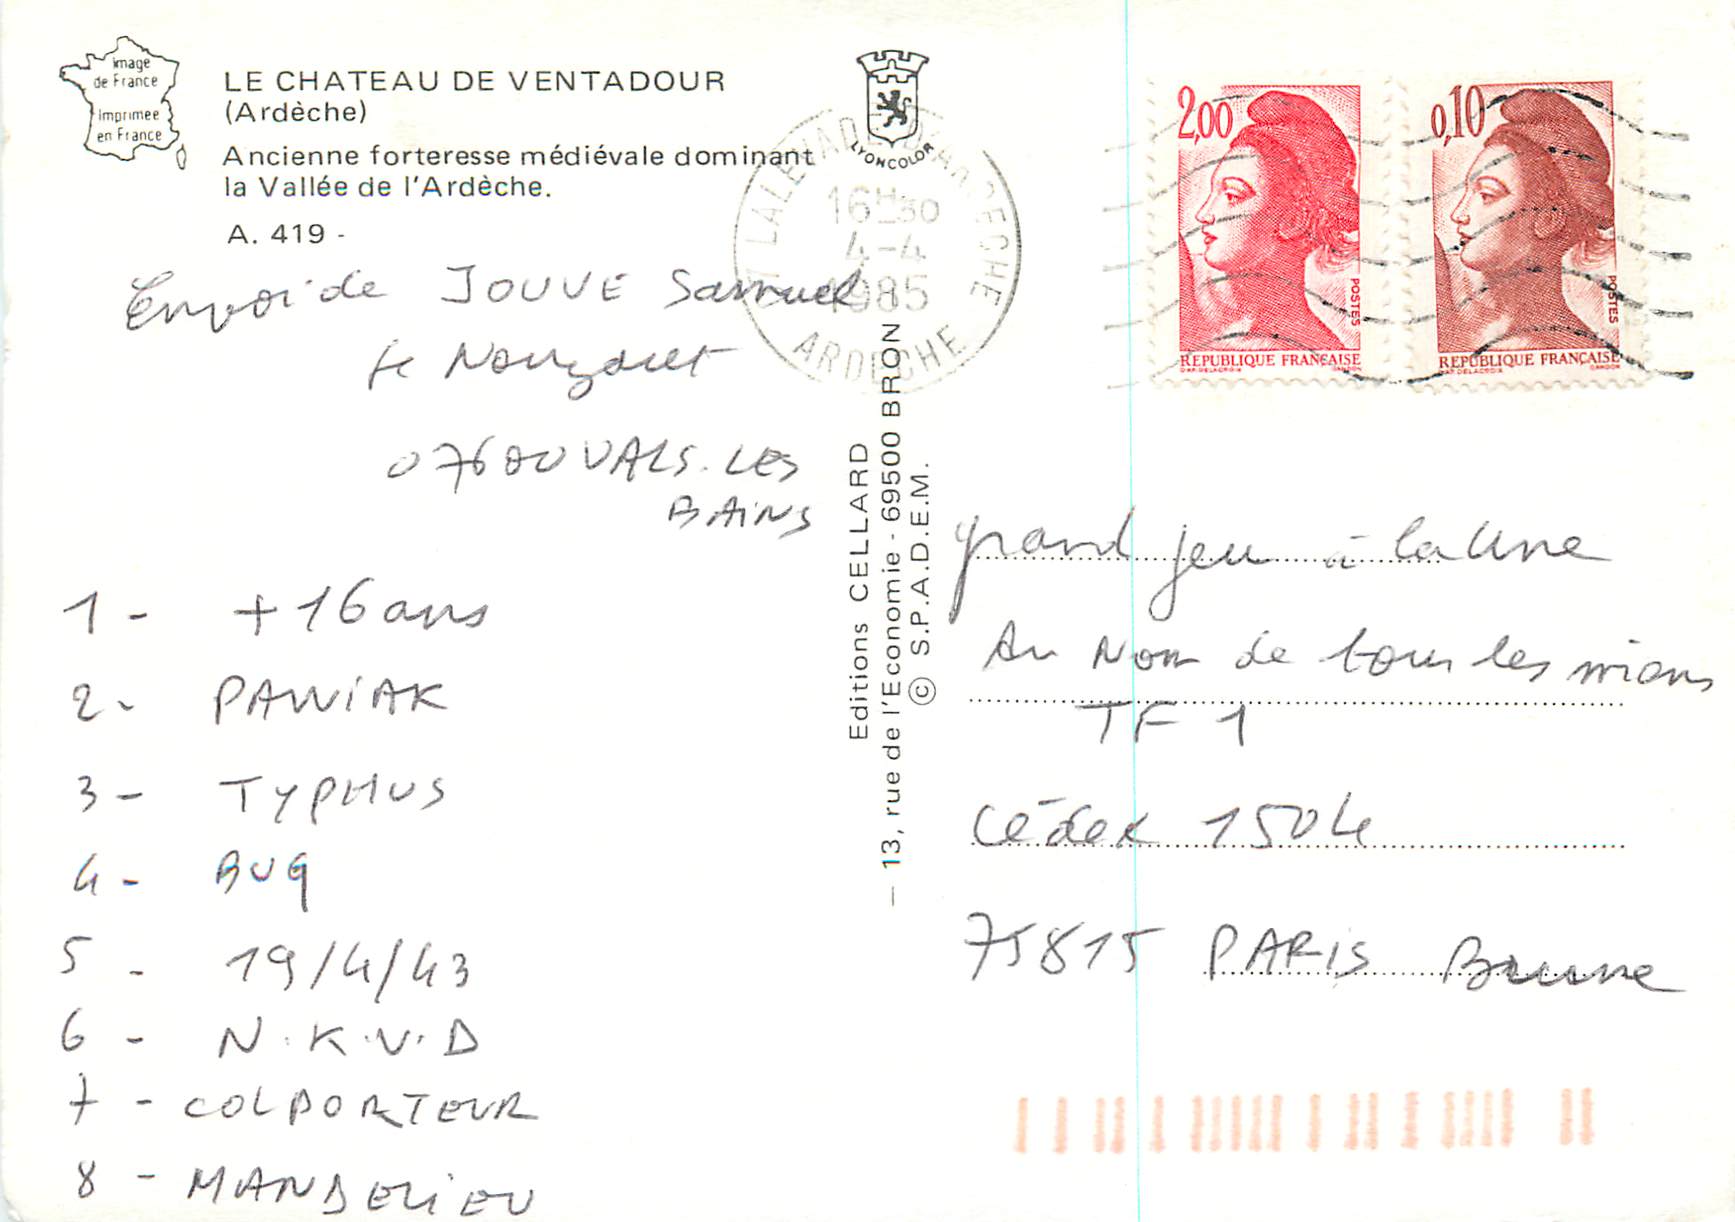 image
de France
imprimée
en France
LE CHATEAU DE VENTADOUR
(Ardèche)
Ancienne forteresse médiévale dominant
la Vallée de l'Ardèche.
A. 419 -
LYONCOLOR
LALEVADE D'ARDECHE
16H30
4-4
1985
ARDECHE
2,00
POSTES
REPUBLIQUE FRANÇAISE
D'AP. DELACROIX
GANDON
0,10
POSTES
REPUBLIQUE FRANÇAISE
D'AP. DELACROIX
GANDON
Envoi de JOUVE Samuel
le Nouzaret
07600 VALS. LES
BAINS
1 - + 16 ans
2 - PAWIAK
3 - TYPHUS
4 - BUG
5 - 19/4/43
6 - N.K.V.D
7 - COLPORTEUR
8 - MANDELIEU
Editions CELLARD
— 13, rue de l'Economie - 69500 BRON
© S.P.A.D.E.M.
grand jeu à la Une
Au Nom de tous les miens
TF 1
Cédex 1504
75815 PARIS Brune